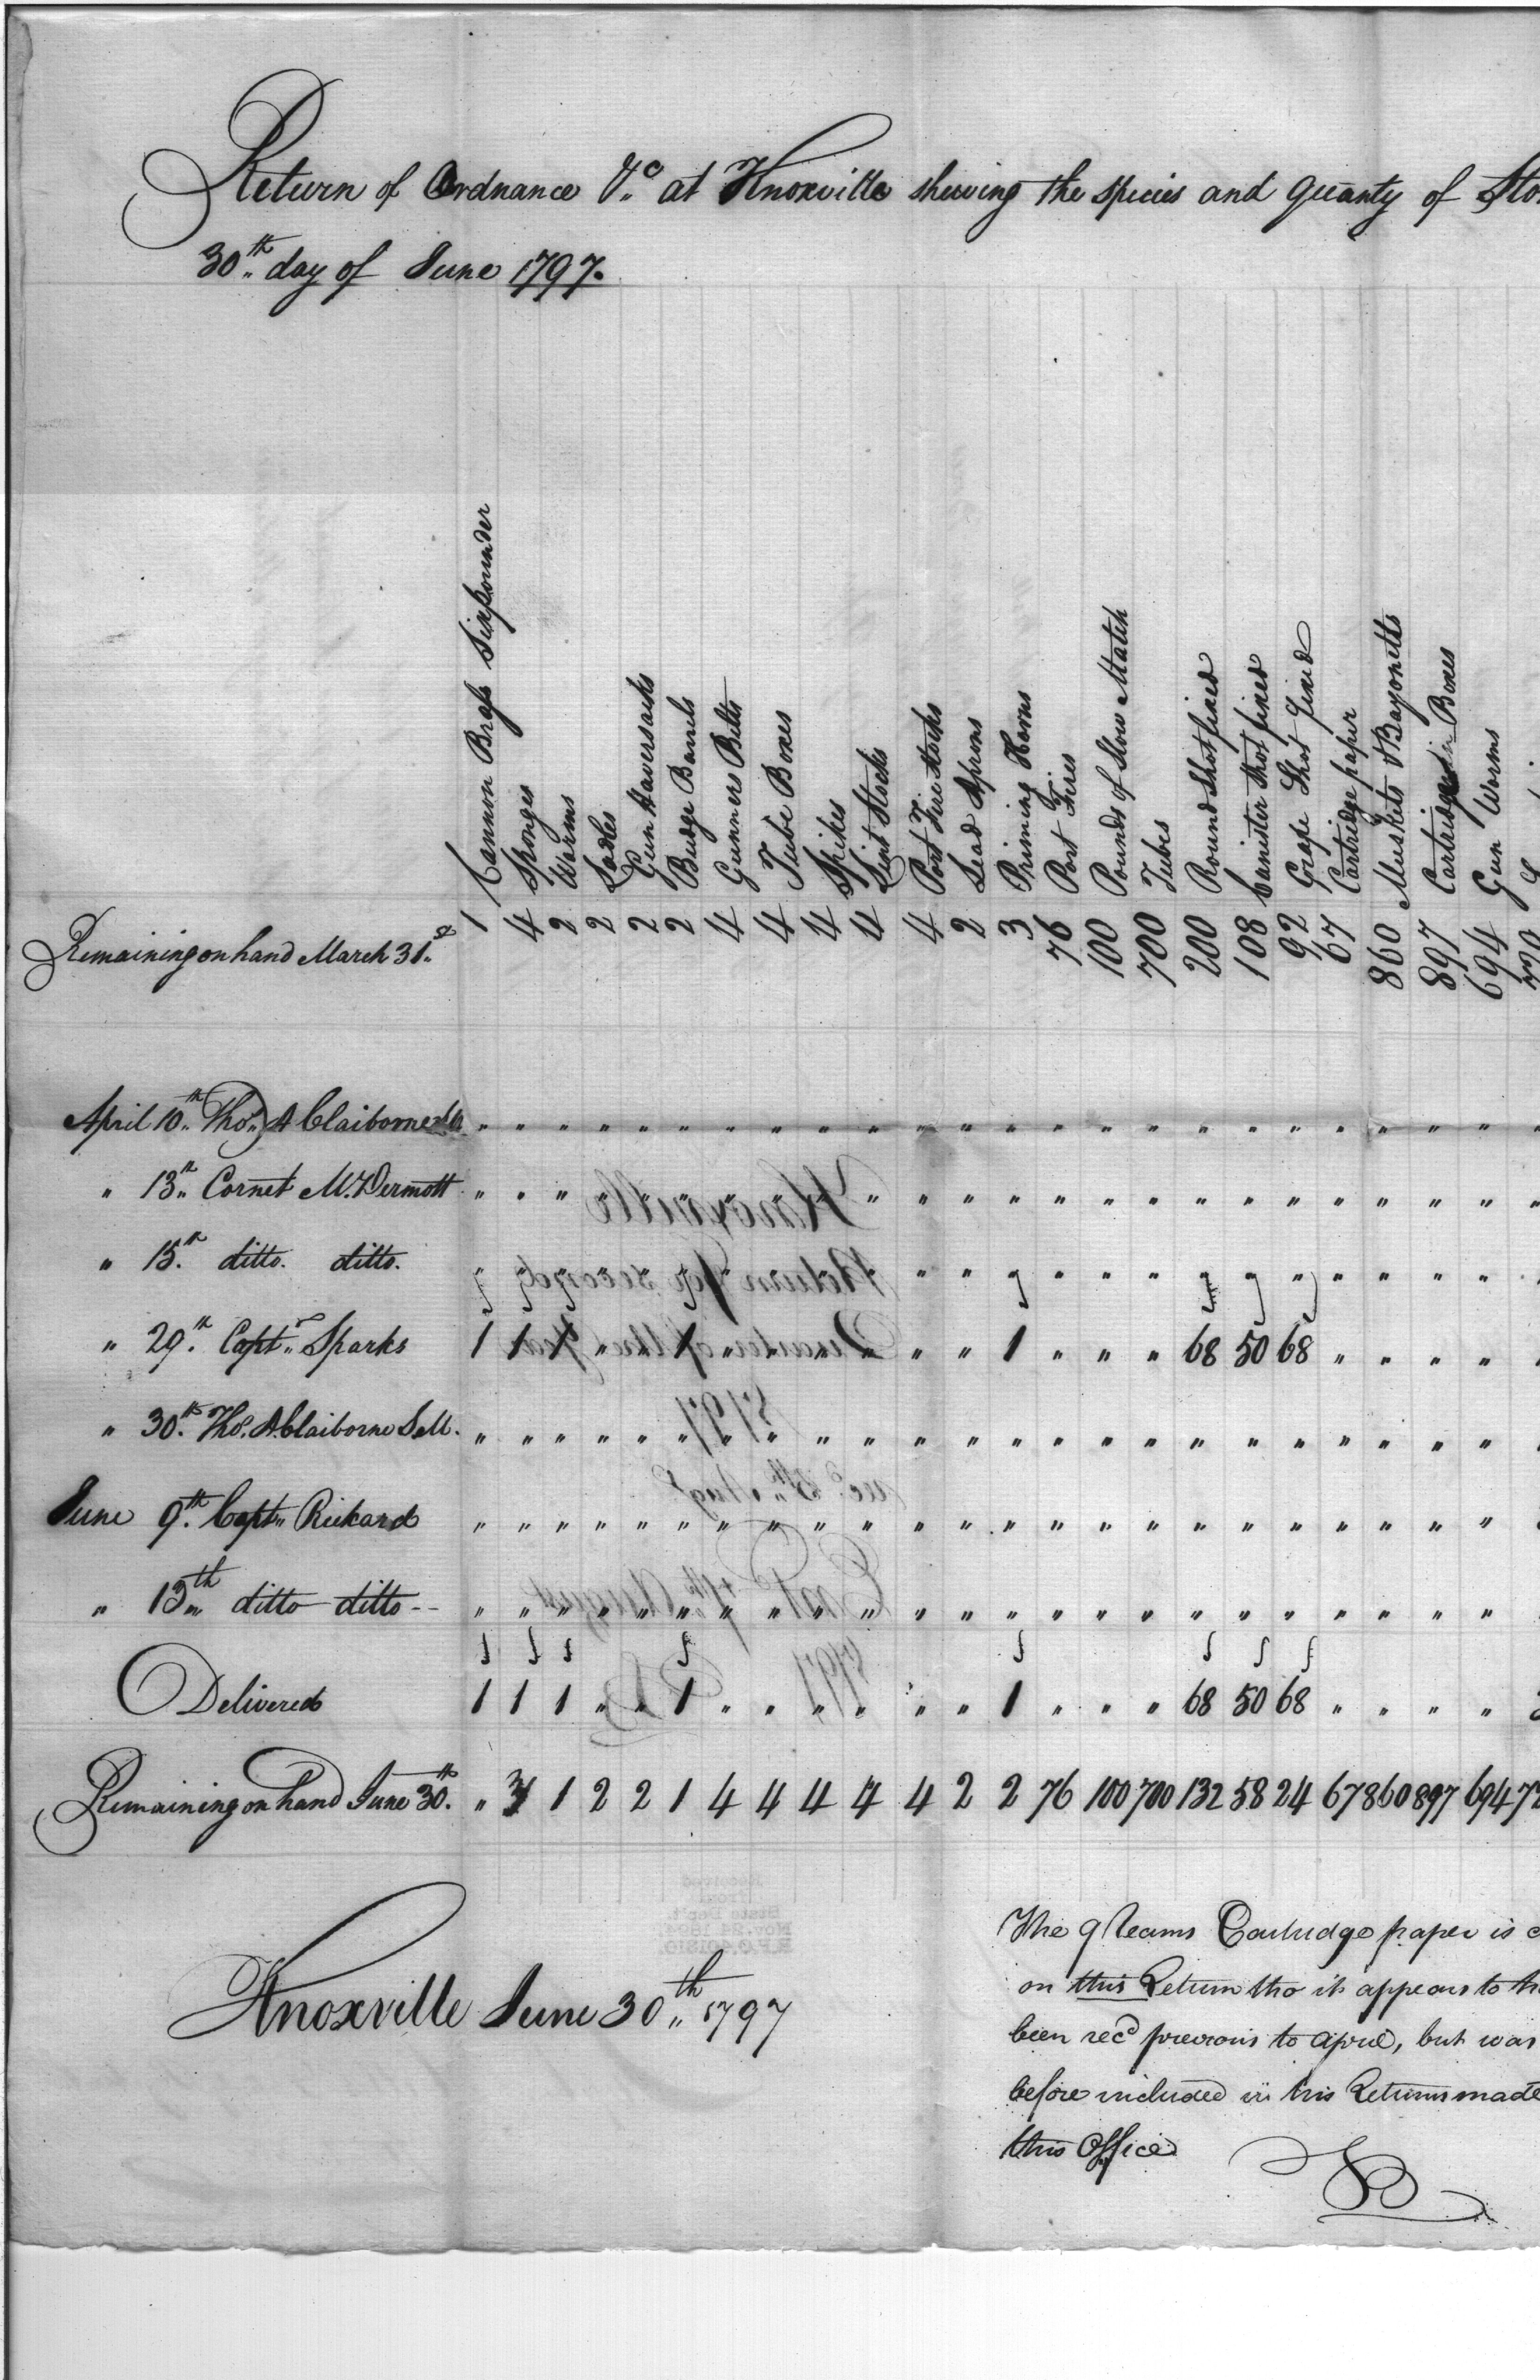 Return of Ordnance &c at Knoxville shewing the species and quanty of Sto
30th day of June 1797.
Remaining on hand March 31st
1 Cannon Brass Sixpounder
4 Sponges
2 Worms
2 Ladles
2 Gun Haversacks
2 Budge Barrels
4 Gunners Belts
4 Tube Boxes
4 Spikes
4 Lint Stocks
4 Port Fire Stocks
2 Lead Aprons
3 Priming Horns
76 Port Fires
100 Pounds of Slow Match
700 Tubes
200 Round Shot fixed
108 Canister Shot fixed
92 Grape Shot fixed
67 Cartridge paper
860 Muskets & Bayonetts
897 Cartridge Boxes
694 Gun Worms
April 10th Thos. A Claiborne " " " " " " " " " " " " " " " " " " " " " " "
" 13th Cornet McDermott " " " " " " " " " " " " " " " " " " " " " " "
" 15th ditto. ditto. " " " " " " " " " " " " " " " " " " " " " " "
" 29th Captn Sparks 1 1 1 " " 1 " " " " " " 1 " " " 68 50 68 " " " "
" 30th Thos. A. Claiborne S M. " " " " " " " " " " " " " " " " " " " " " " "
June 9th Captn Rickard " " " " " " " " " " " " " " " " " " " " " " "
" 13th ditto ditto -- " " " " " " " " " " " " " " " " " " " " " " "
Delivered 1 1 1 " " 1 " " " " " " 1 " " " 68 50 68 " " " "
Remaining on hand June 30th. " 3 1 2 2 1 4 4 4 4 4 2 2 76 100 700 132 58 24 67 860 897 694 7
Knoxville June 30th 1797
The 9 Reams Cartridge paper is
on this Return tho it appears to
been recd previous to April, but was
before included in his Returns made
this Office
Knoxville
Return for second
Quarter of the Year
1797
recd. 8th. Augt
East 4th August
1797
Received
from
State Dep't.
Nov. 24, 1894
R.P.O. 401810